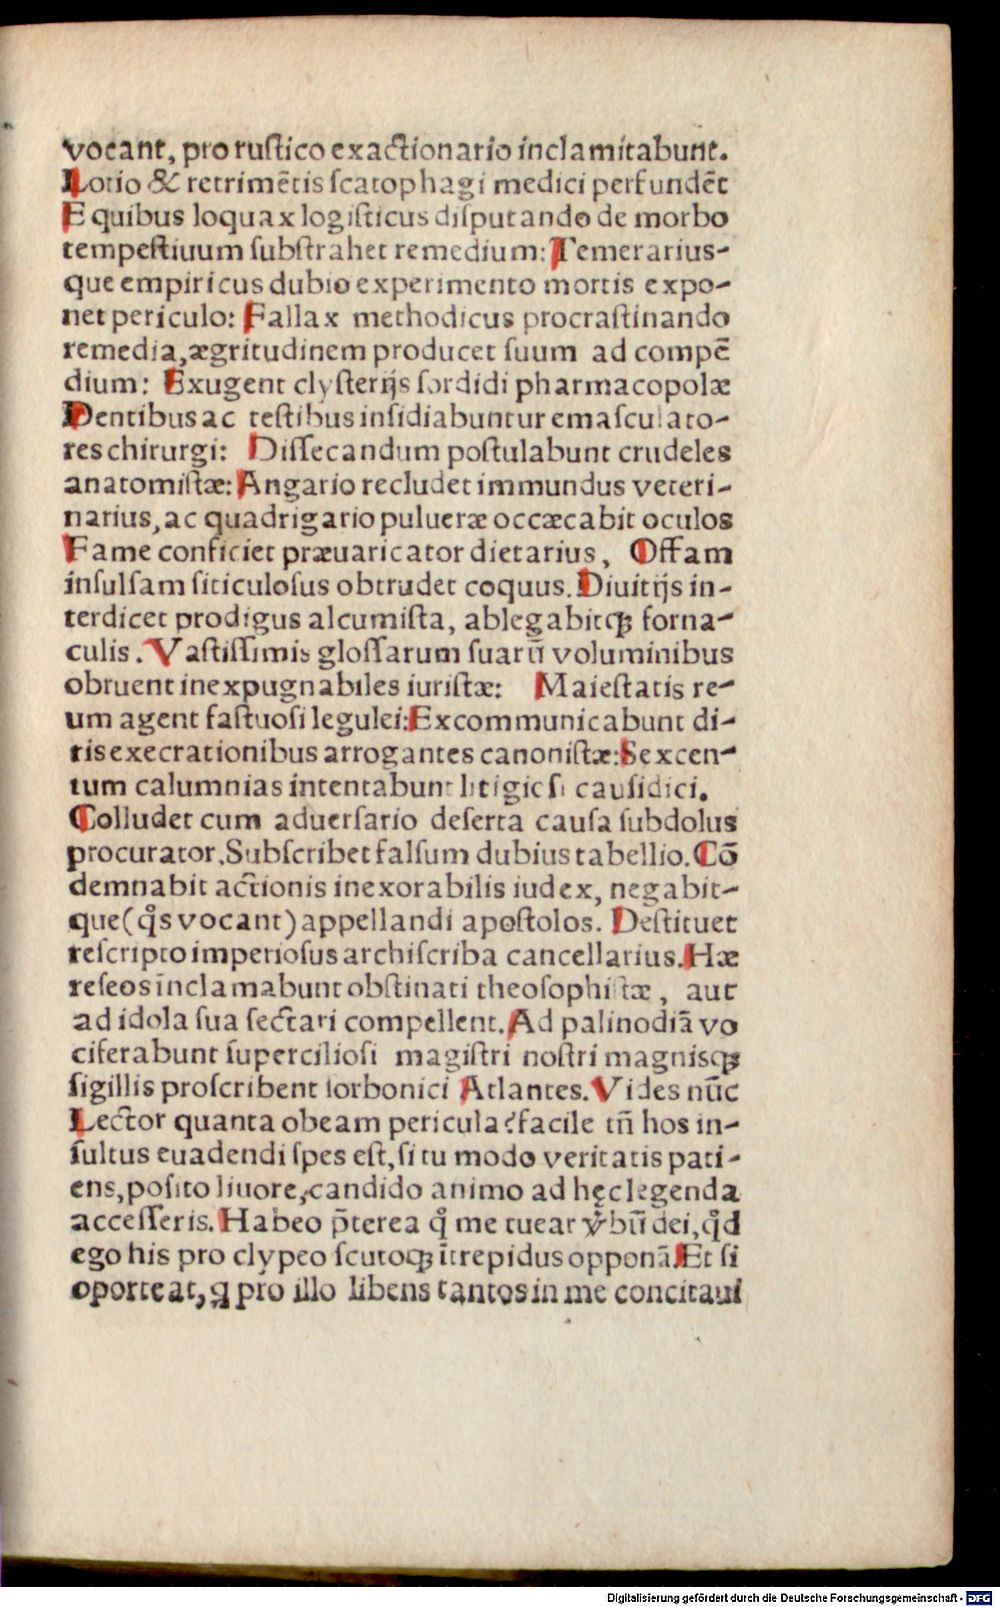 vocant, pro rustico exactionario inclamitabunt.
Lotio & retrimētis scatophagi medici perfundēt
E quibus loquax logisticus disputando de morbo
tempestiuum substrahet remedium: Temerarius-
que empiricus dubio experimento mortis expo-
net periculo: Fallax methodicus procrastinando
remedia, ægritudinem producet suum ad compē
dium: Exugent clysterijs sordidi pharmacopolæ
Dentibus ac testibus insidiabuntur emasculato-
res chirurgi: Dissecandum postulabunt crudeles
anatomistæ: Angario recludet immundus veteri-
narius, ac quadrigario puluere occæcabit oculos
Fame conficiet præuaricator dietarius, Offam
insulsam siticulosus obtrudet coquus. Diuitijs in-
terdicet prodigus alcumista, ablegabitqꝫ forna-
culis. Vastissimis glossarum suarū voluminibus
obruent inexpugnabiles iuristæ: Maiestatis re-
um agent fastuosi legulei: Excommunicabunt di-
ris execrationibus arrogantes canonistæ: Sexcen-
tum calumnias intentabunt litigiosi causidici.
Colludet cum aduersario deserta causa subdolus
procurator. Subscribet falsum dubius tabellio. Cō
demnabit actionis inexorabilis iudex, negabit-
que (q̊s vocant) appellandi apostolos. Destituet
rescripto imperiosus archiscriba cancellarius. Hæ
reseos inclamabunt obstinati theosophistæ, aut
ad idola sua sectari compellent. Ad palinodiā vo
ciferabunt superciliosi magistri nostri magnisqꝫ
sigillis proscribent sorbonici Atlantes. Vides nūc
Lector quanta obeam pericula? facile tn̄ hos in-
sultus euadendi spes est, si tu modo veritatis pati-
ens, posito liuore, candido animo ad hęc legenda
accesseris. Habeo p̄terea q̊ me tuear v̄bū dei, q̊d
ego his pro clypeo scutoqꝫ ītrepidus opponā. Et si
oporteat, q pro illo libens tantos in me concitaui
Digitalisierung gefördert durch die Deutsche Forschungsgemeinschaft - DFG